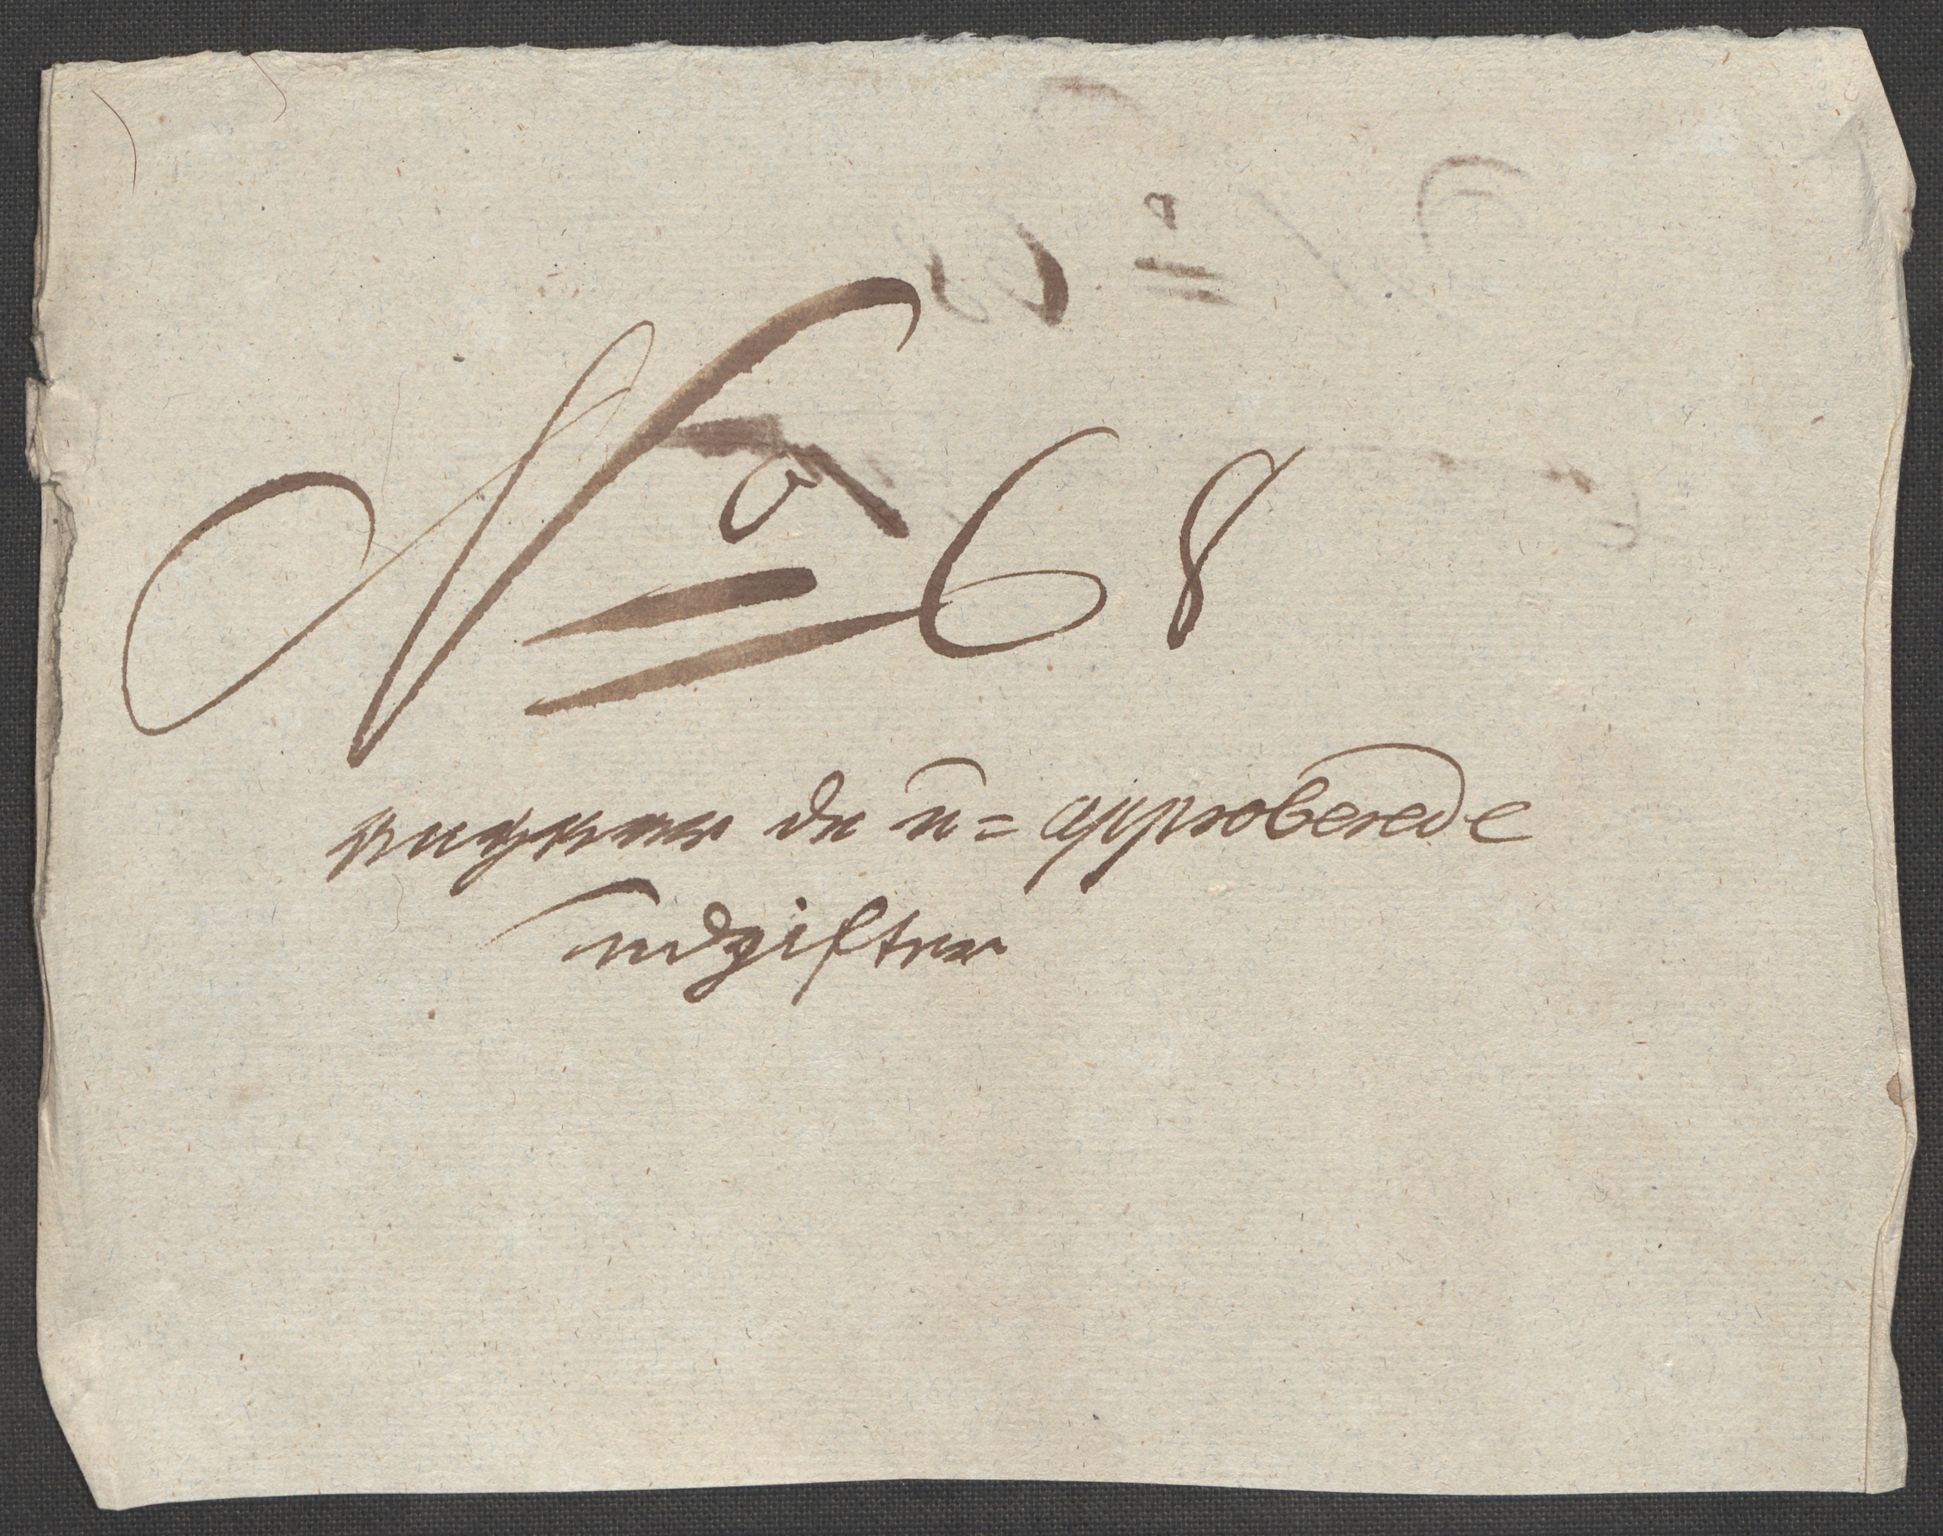 No 68
de u= approberede
udgifter